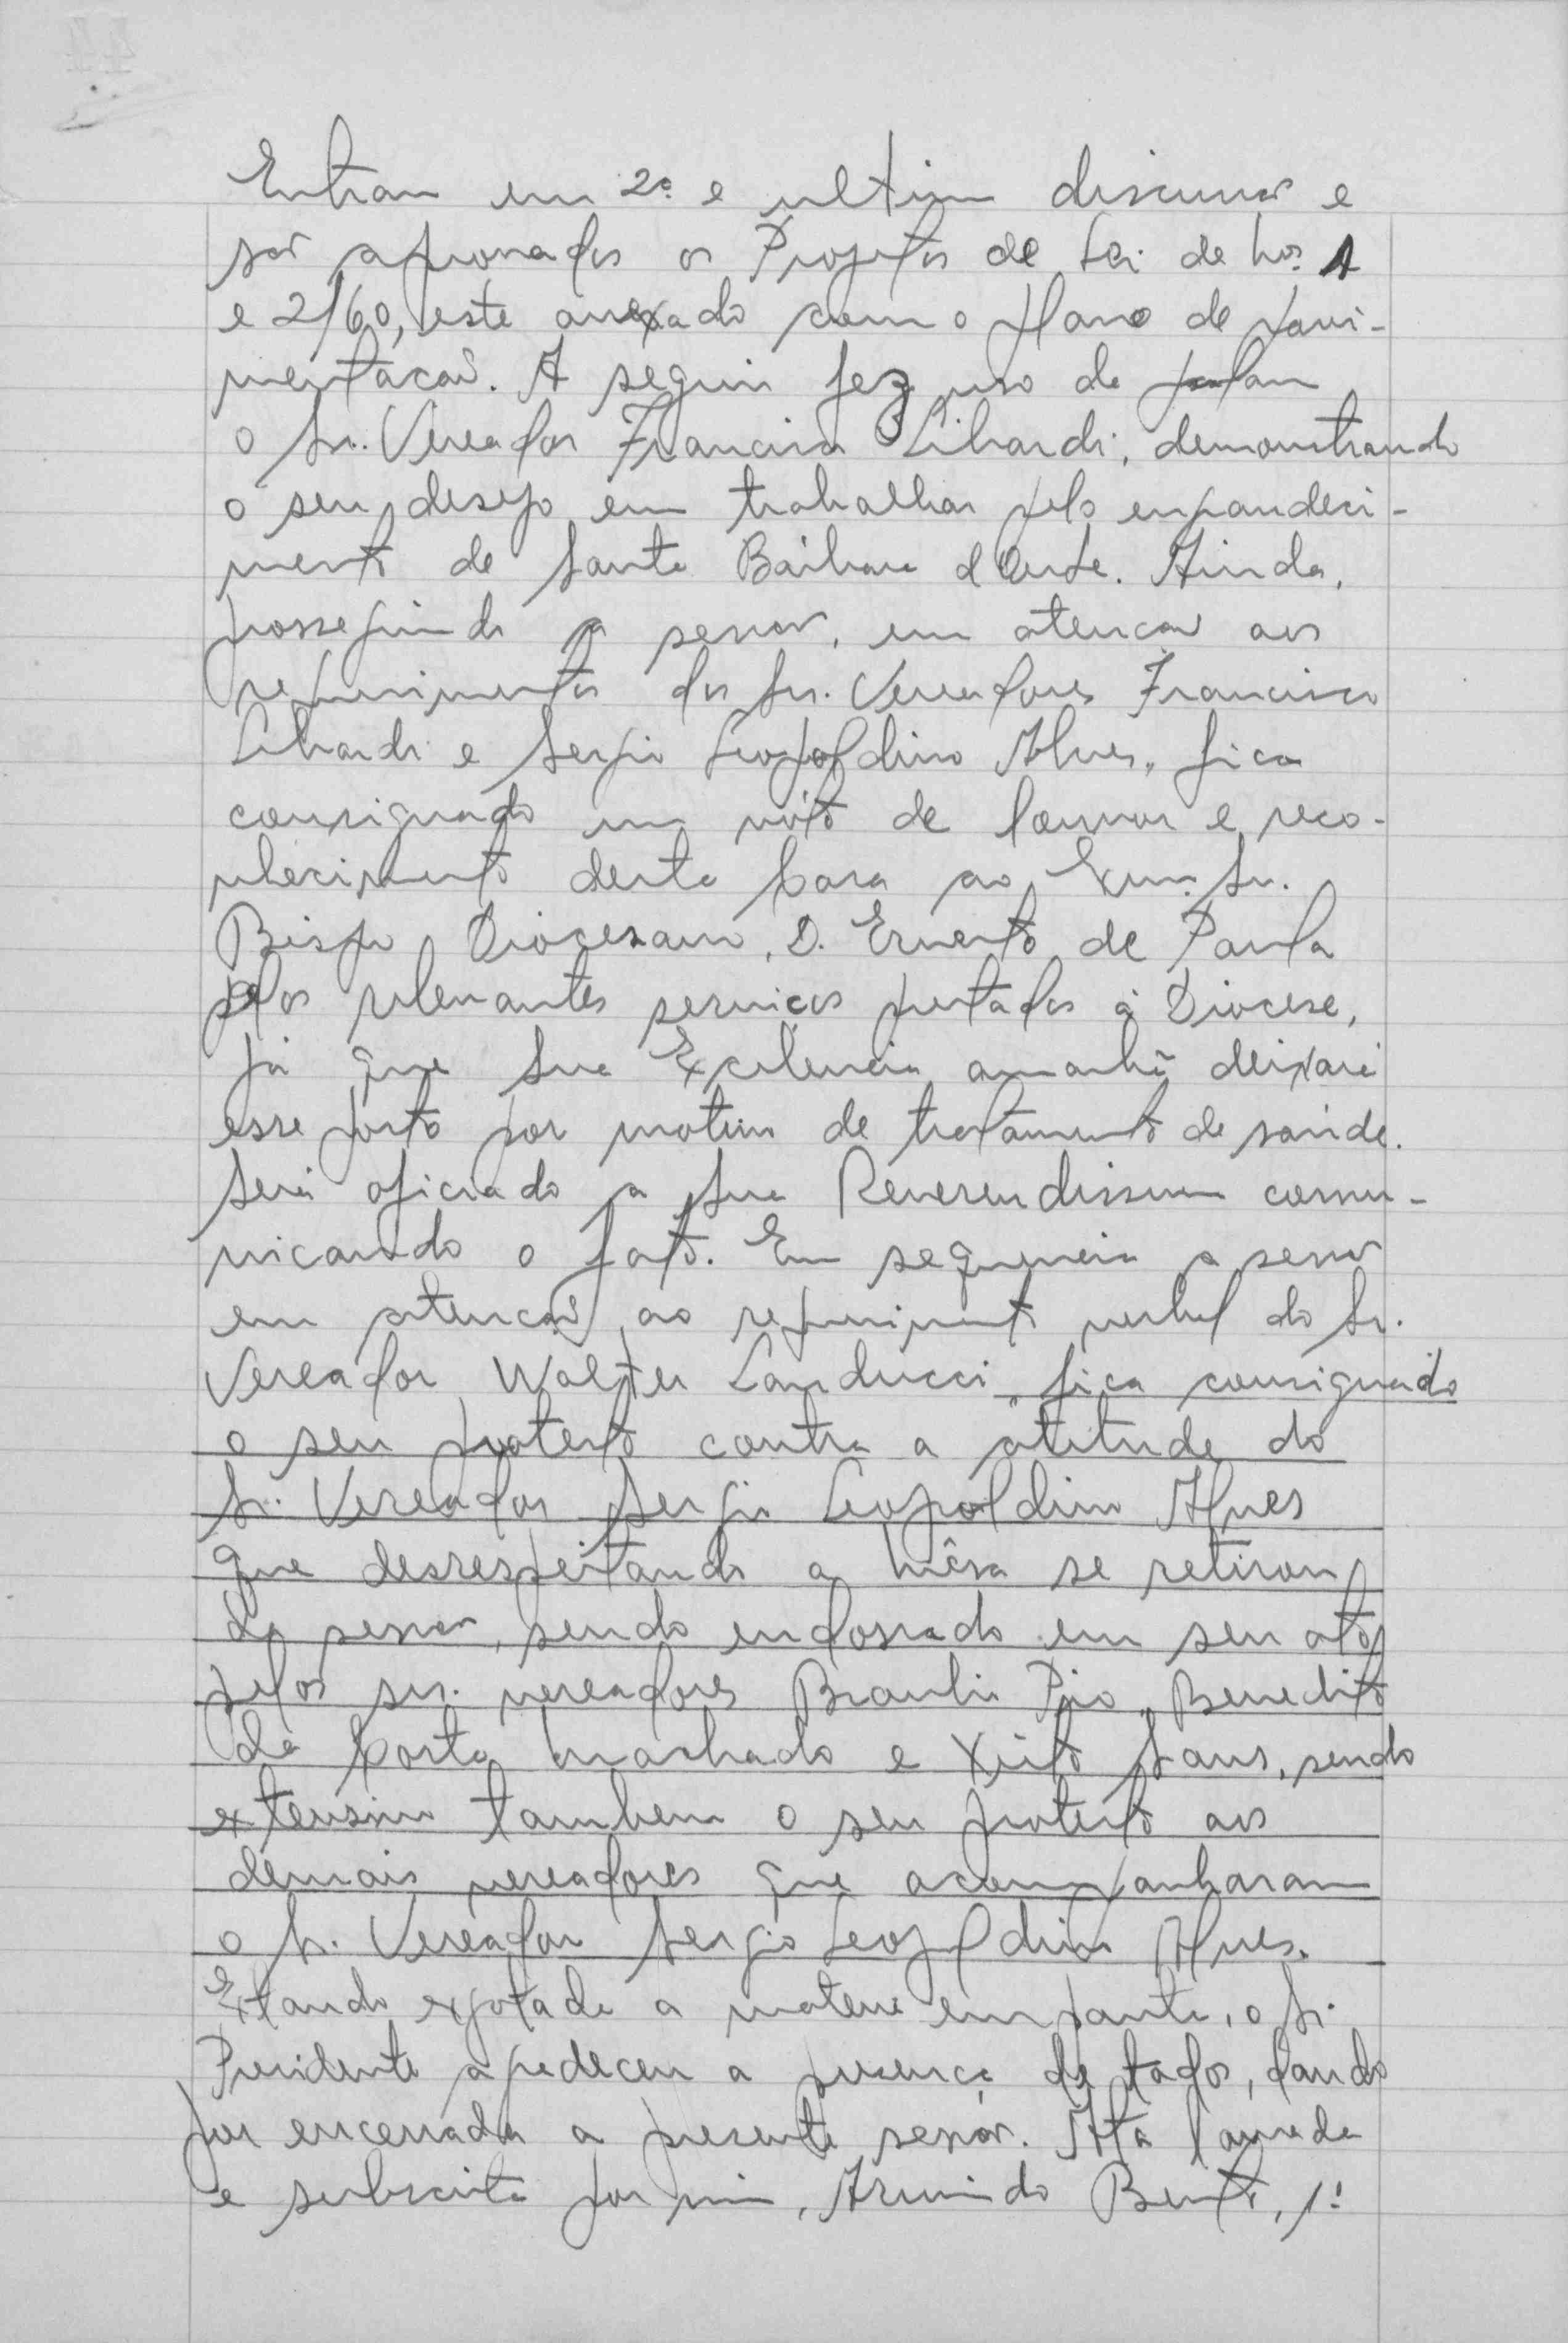 Entram em 2ª e ultima discussão e
são aprovados os Projetos de Lei de nos. 1
e 2/60, este anexado com o plano de pavi-
mentação. A seguir fez uso da palavra
o Sr. Vereador Francisco Libardi, demonstrando
o seu desejo em trabalhar pelo engrandeci-
mento de Santa Bárbara d'Oeste. Ainda,
prosseguindo a sessão, em atenção aos
requerimentos dos Srs. Vereadores Francisco
Libardi e Sergio Leopoldino Alves, fica
consignado um vóto de louvor e reco-
nhecimento desta Casa ao Exmo. Sr.
Bispo Diocesano, D. Ernesto de Paula
pelos relevantes serviços prestados á Diocese,
já que Sua Excelencia amanhã deixará
esse posto por motivo de tratamento de saúde.
Será oficiado a Sua Reverendissima comu-
nicando o fato. Em sequencia a sessão
em atenção ao requerimento verbal do Sr.
Vereador Walter Landucci, fica consignado
o seu protesto contra a atitude do
Sr. Vereador Sergio Leopoldino Alves
que desrespeitando a mêsa se retirou
da sessão, sendo endossado em seu ato
pelos srs. vereadores Braulio Pio, Benedito
da Costa Machado e Xisto Sans, sendo
extensivo tambem o seu protesto aos
demais vereadores que acompanharam
o Sr. Vereador Sergio Leopoldino Alves.
Extando exgotada a materia em pauta, o Sr.
Presidente agradeceu a presença de todos, dando
por encerrada a presente sessão. Ata lavrada
e subscrita por mim, Armindo Bento, 1º